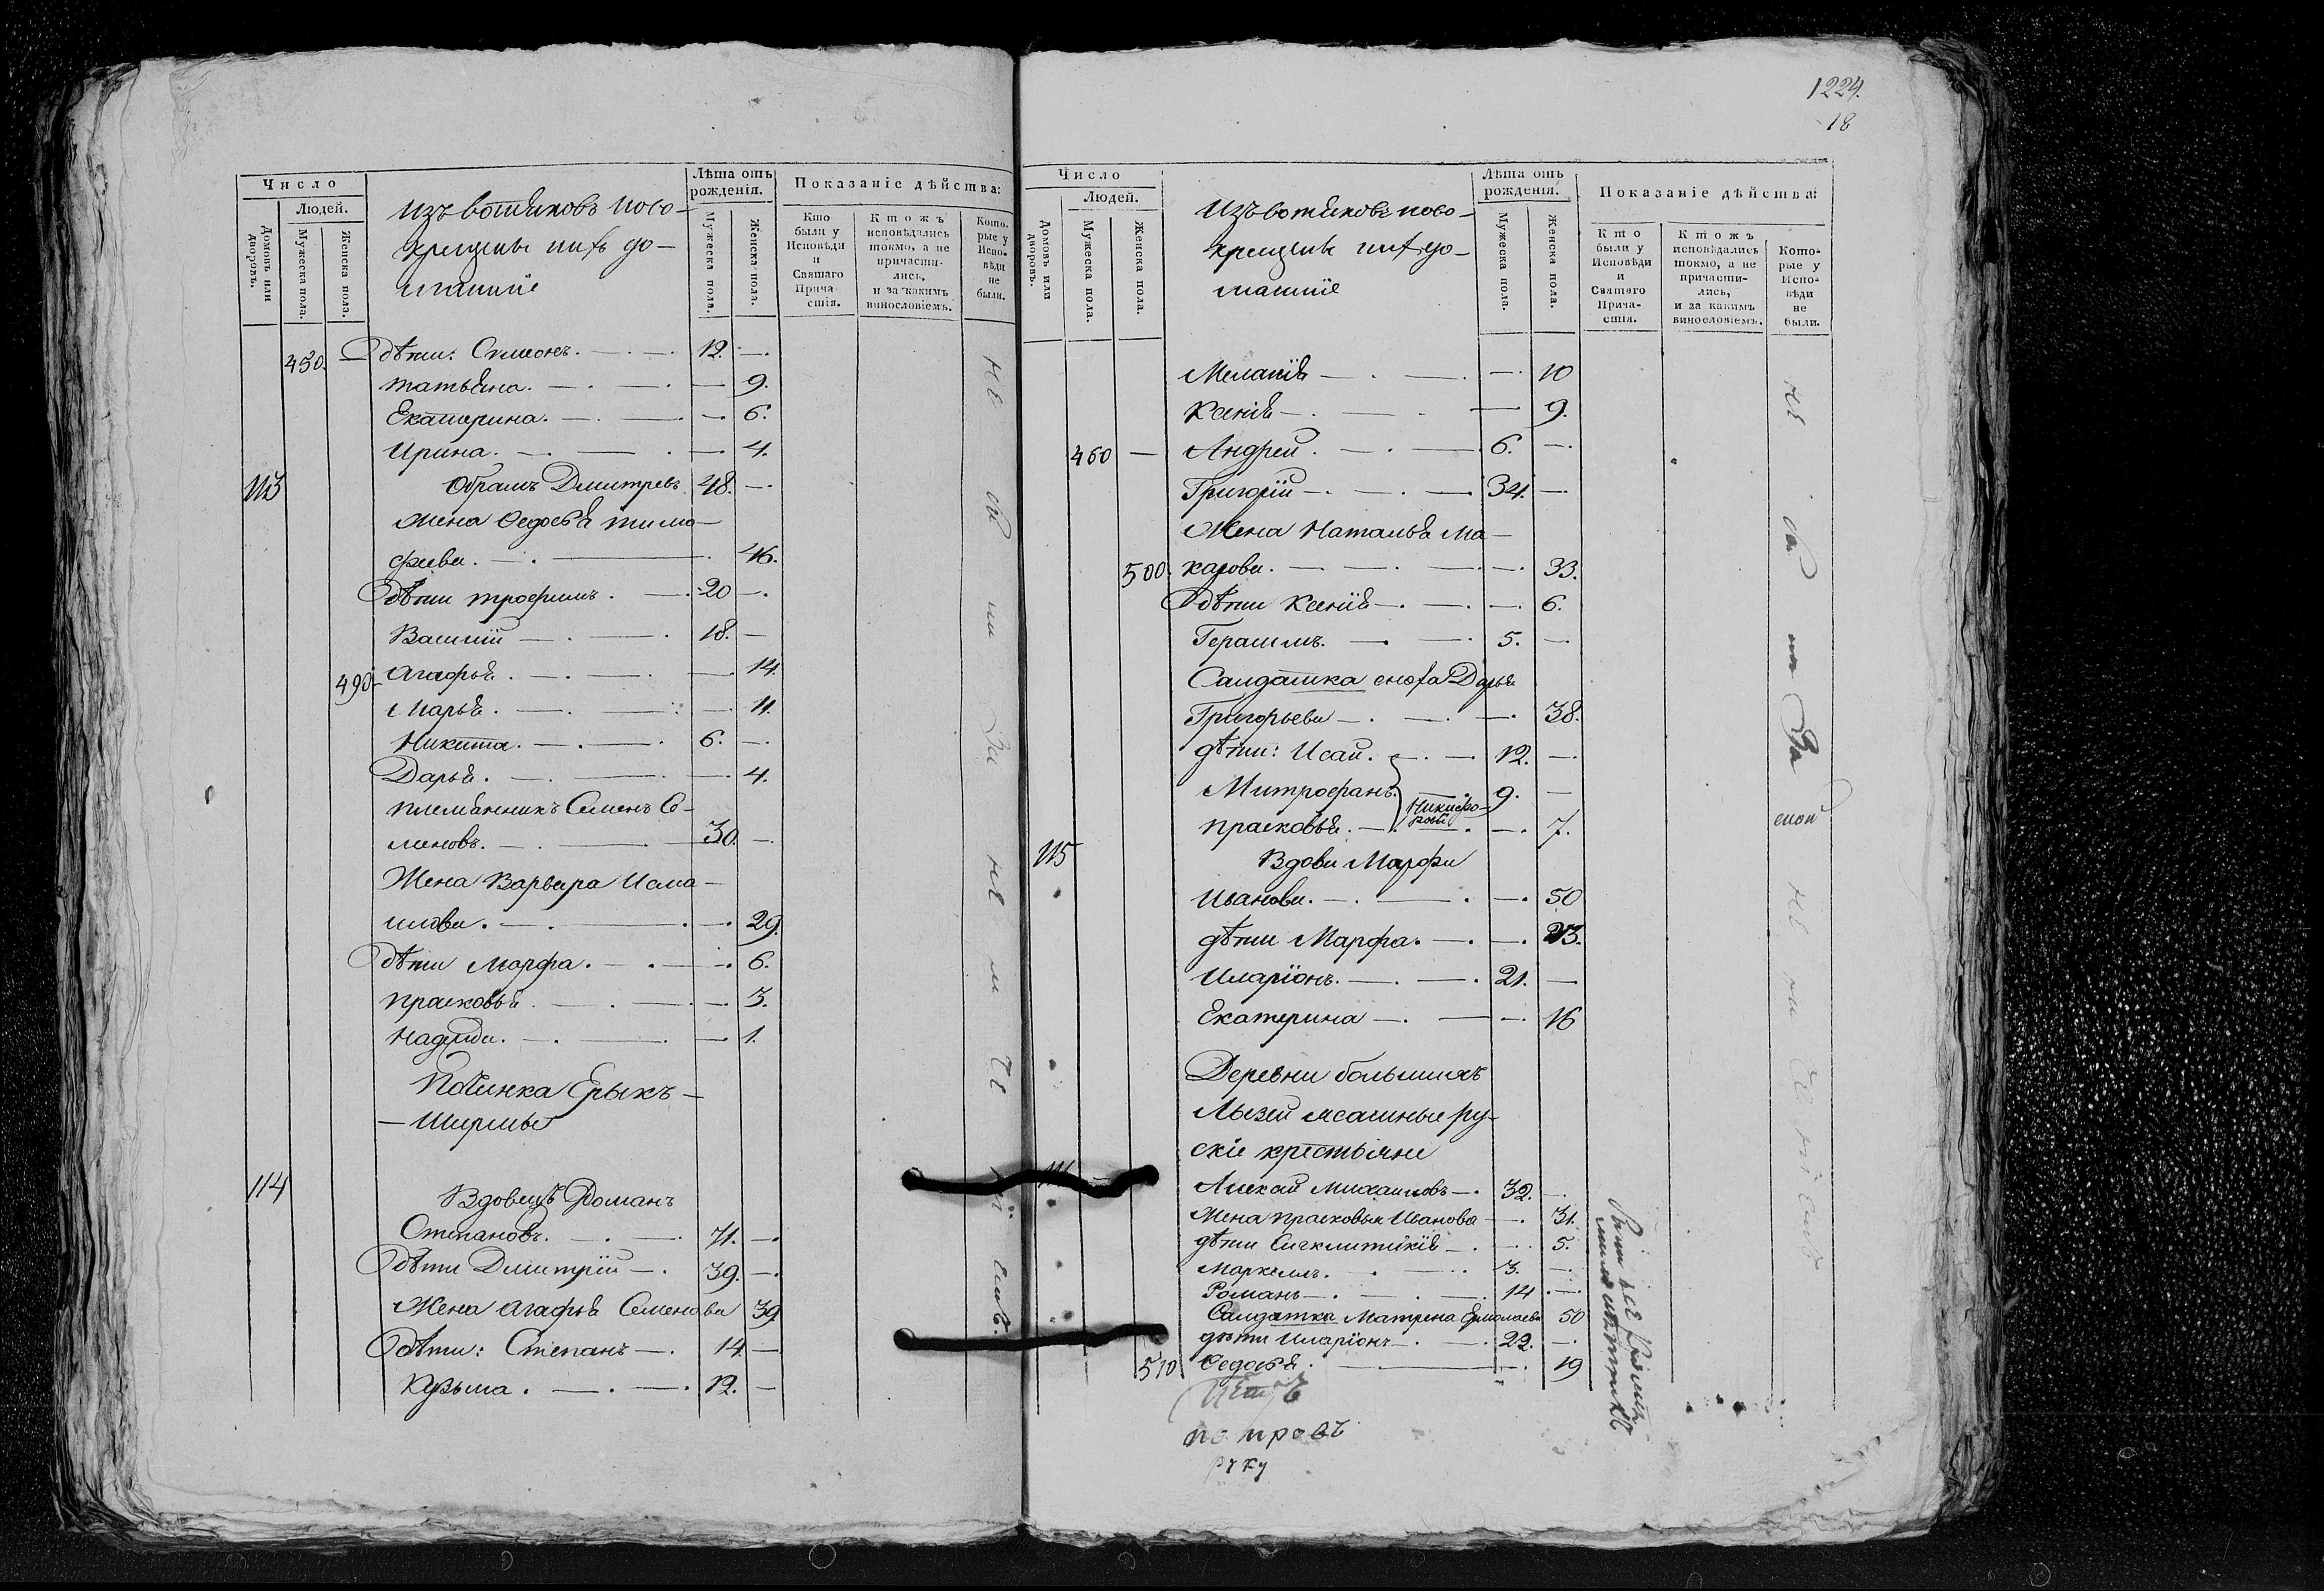 1224.
18
Число
Людей.
Домовъ или дворовъ.
Мужеска пола.
Женска пола.
Изъ вотяковъ ново-
крещены и ихъ до-
машніе
Лѣта отъ рожденія.
Мужеска пола.
Женска пола.
Показаніе дѣйства:
Кто были у Исповѣди и Святаго Причастія.
Ктожъ исповѣдались токмо, а не причастились, и за какимъ винословіемъ.
Которые у Исповѣди не были.
450. — Дѣти: Симеонъ. — 12. —
татьяна. — 9.
Екатерина. — 6.
Ирина. — 4.
113 Обрамъ Дмитревъ 48. —
Жена Федосья тимо-
феева. — 46.
Дѣти трофимъ. — 20 —
Василій — 18. —
490. Агафья. — 14.
Марья. — 11.
Никита. — 6. —
Дарья. — 4.
племянникъ Семенъ Се-
меновъ. — 30. —
Жена Варвара Исма-
илова. — 29.
Дѣти Марфа. — 6.
прасковья. — 3.
Надежда. — 1.
Починка Ерыкъ-
— Ширмы
114 Вдовецъ Романъ
Степановъ. — 71. —
Дѣти Дмитрій — 39. —
Жена Агафья Семенова 39
Дѣти: Степанъ — 14 —
Кузьма. — 12. —
Число
Людей.
Домовъ или дворовъ.
Мужеска пола.
Женска пола.
Изъ вотяковъ ново-
крещены и ихъ до-
машніе
Лѣта отъ рожденія.
Мужеска пола.
Женска пола.
Показаніе дѣйства:
Кто были у Исповѣди и Святаго Причастія.
Ктожъ исповѣдались токмо, а не причастились, и за какимъ винословіемъ.
Которые у Исповѣди не были.
Меланія — 10
Ксенія — 9.
460 — Андрей. — 6. —
Григорій — 34. —
Жена Наталья Ма-
500. карова. — 33.
Дѣти Ксенія — 6.
Герасимъ. — 5. —
Салдатка сноха Дарья
Григорьева — 38.
дѣти: Исаи. — 12. —
Митрофанъ. 9. —
Никифо-
ровы
прасковья. — 7.
115 Вдова Марфа
Иванова. — 50
дѣти Марфа. — 23.
Иларіонъ. — 21. —
Екатерина — 16
Деревни большихъ
Лызей ясашные ру-
скіе крестьяне
Алексѣй Михаиловъ — 32. —
Жена прасковья Иванова — 31.
дѣти Сигклитикія — 5.
Маркеллъ. — 3. —
Романъ — 14 —
Салдатка Матрена Ермолаева 50
дѣти Иларіонъ — 22. —
510 Федосья. — 19
петровъ
руку